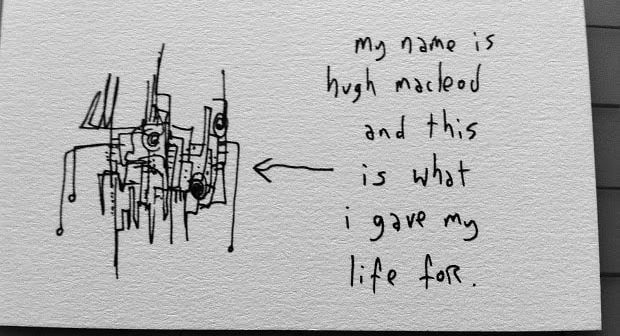 my name is
hugh macleod
and this
is what
i gave my
life for.